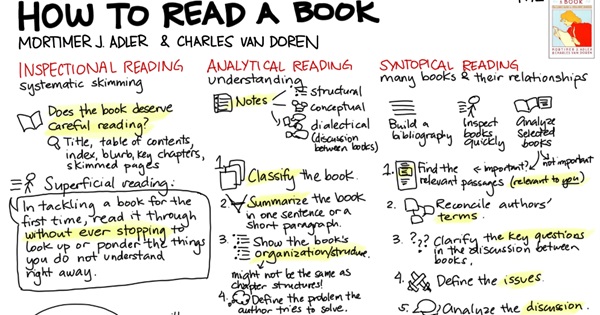 HOW TO READ A BOOK
MORTIMER J. ADLER & CHARLES VAN DOREN
BOOK
MORTIMER J. ADLER
& CHARLES VAN DOREN
INSPECTIONAL READING
systematic skimming
Does the book deserve
careful reading?
Title, table of contents,
index, blurb, key chapters,
skimmed pages
Superficial reading:
In tackling a book for the
first time, read it through
without ever stopping to
look up or ponder the things
you do not understand
right away.
ANALYTICAL READING
understanding
Notes
structural
conceptual
dialectical
(discussion
between books)
1. Classify the book.
2. Summarize the book
in one sentence or a
short paragraph.
3. Show the book's
organization/structure.
might not be the same as
chapter structures!
4. Define the problem the
author tries to solve.
SYNTOPICAL READING
many books & their relationships
Build a
bibliography
Inspect
books
quickly
Analyze
Selected
books
1. Find the
relevant passages
important?
not important
(relevant to you)
2. Reconcile authors'
terms.
3. ??? Clarify the key questions
in the discussion between
books.
4. Define the issues.
5. Analyze the discussion.